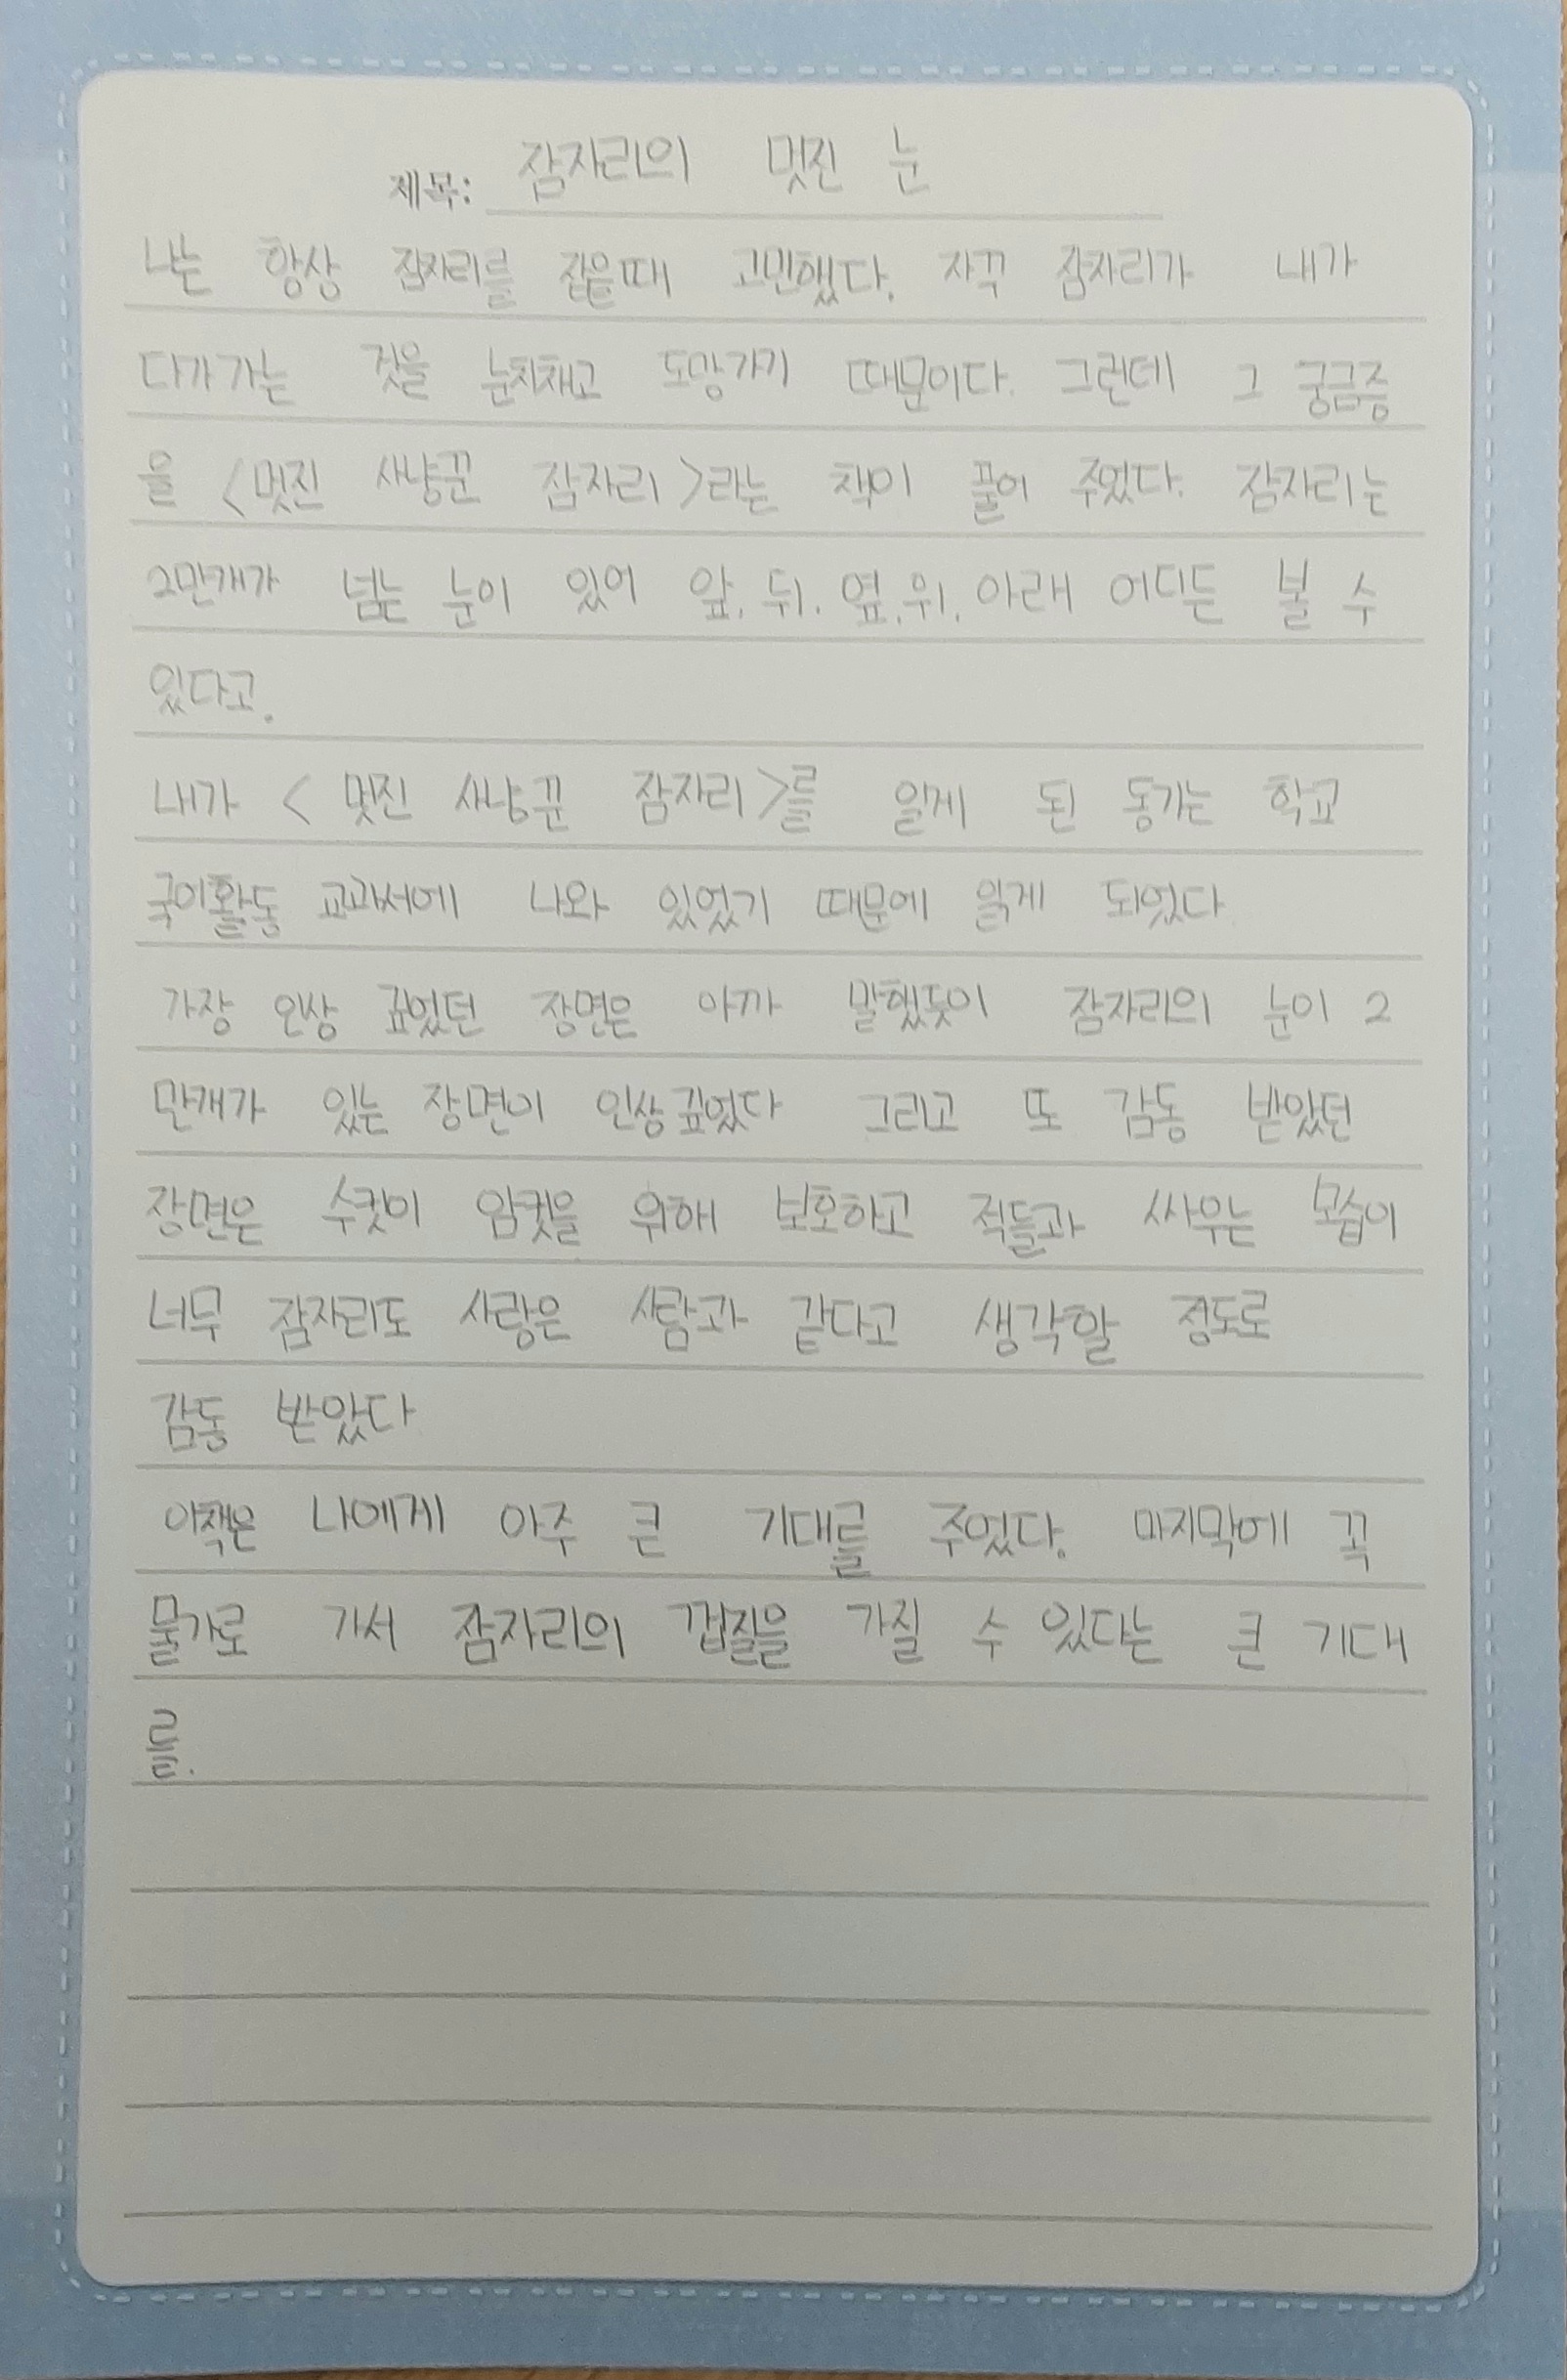 제목: 잠자리의 멋진 눈
나는 항상 잠자리를 잡을때 고민했다. 자꾸 잠자리가 내가
다가가는 것을 눈치채고 도망가기 때문이다. 그런데 그 궁금증
을 <멋진 사냥꾼 잠자리>라는 책이 풀어 주었다. 잠자리는
2만개가 넘는 눈이 있어 앞, 뒤, 옆, 위, 아래 어디든 볼 수
있다고.
내가 <멋진 사냥꾼 잠자리>를 읽게 된 동기는 학교
국어활동 교과서에 나와 있었기 때문에 읽게 되었다
가장 인상 깊었던 장면은 아까 말했듯이 잠자리의 눈이 2
만개가 있는 장면이 인상깊었다 그리고 또 감동 받았던
장면은 수컷이 암컷을 위해 보호하고 적들과 싸우는 모습이
너무 잠자리도 사랑은 사람과 같다고 생각할 정도로
감동 받았다
이책은 나에게 아주 큰 기대를 주었다. 마지막에 꼭
물가로 가서 잠자리의 껍질을 가질 수 있다는 큰 기대
를.